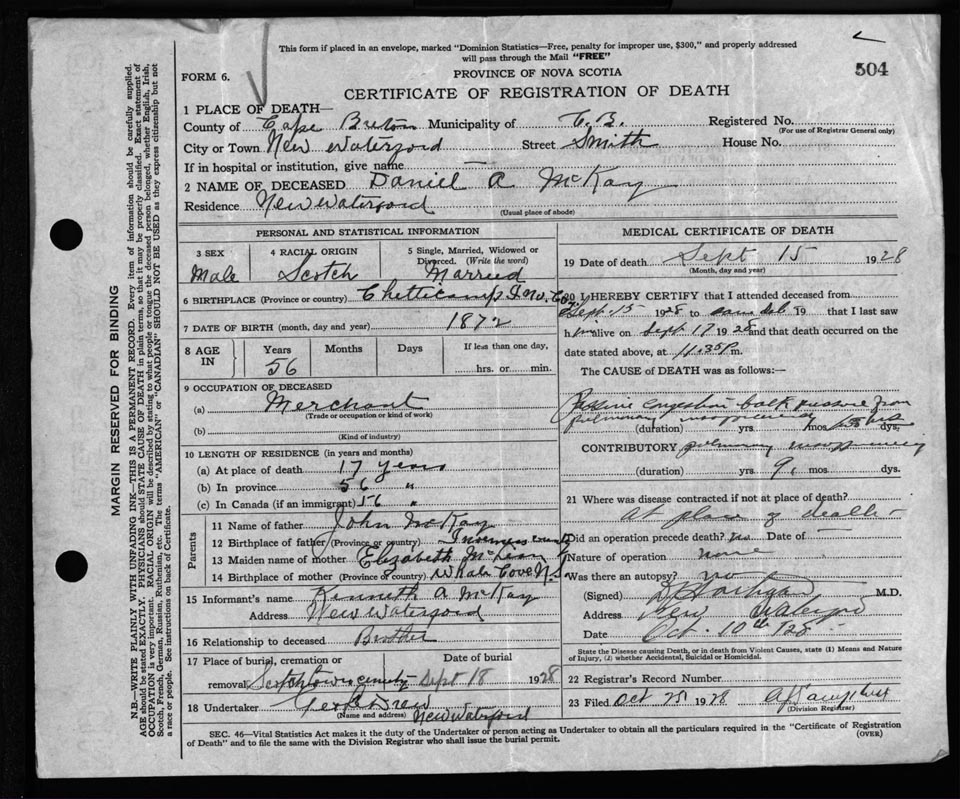 This form if placed in an envelope, marked "Dominion Statistics—Free, penalty for improper use, $300," and properly addressed
will pass through the Mail "FREE"
FORM 6.
PROVINCE OF NOVA SCOTIA
504
CERTIFICATE OF REGISTRATION OF DEATH
1 PLACE OF DEATH—
County of Cape Breton Municipality of C.B. Registered No.
(For use of Registrar General only)
City or Town New Waterford Street Smith House No.
If in hospital or institution, give name —
2 NAME OF DECEASED Daniel A McKay
Residence New Waterford
(Usual place of abode)
PERSONAL AND STATISTICAL INFORMATION
3 SEX 4 RACIAL ORIGIN 5 Single, Married, Widowed or
Divorced. (Write the word)
Male Scotch Married
6 BIRTHPLACE (Province or country) Chetticamp Inv. Co.
7 DATE OF BIRTH (month, day and year) 1872
8 AGE IN Years Months Days If less than one day,
56 hrs. or min.
9 OCCUPATION OF DECEASED
(a) Merchant
(Trade or occupation or kind of work)
(b)
(Kind of industry)
10 LENGTH OF RESIDENCE (in years and months)
(a) At place of death 17 years
(b) In province 56 "
(c) In Canada (if an immigrant) 56 "
Parents
11 Name of father John McKay
12 Birthplace of father (Province or country) Inverness County
13 Maiden name of mother Elizabeth McLean
14 Birthplace of mother (Province or country) Whale Cove N.S.
15 Informant's name Kenneth A McKay
Address New Waterford
16 Relationship to deceased Brother
17 Place of burial, cremation or Date of burial
removal Scotchtown cemetry Sept 18 1928
18 Undertaker
(Name and address) New Waterford
MEDICAL CERTIFICATE OF DEATH
19 Date of death Sept 15 1928
(Month, day and year)
20 I HEREBY CERTIFY that I attended deceased from
Sept. 15 1928 to 19 that I last saw
him alive on Sept 17 1928 and that death occurred on
the date stated above, at 11.35 P m.
The CAUSE of DEATH was as follows:—
congestion back pressure from
pulmonary
(duration) yrs. mos. dys.
CONTRIBUTORY pulmonary
(duration) yrs. mos. dys.
21 Where was disease contracted if not at place of death?
At place of death
Did an operation precede death? no Date of
Nature of operation none
Was there an autopsy? no
(Signed) M.D.
Address New Waterford
Date Oct. 10th 1928
State the Disease causing Death, or in death from Violent Causes, state (1) Means and Nature
of Injury, (2) whether Accidental, Suicidal or Homicidal.
22 Registrar's Record Number
23 Filed Oct 25 1928
(Division Registrar)
SEC. 46—Vital Statistics Act makes it the duty of the Undertaker or person acting as Undertaker to obtain all the particulars required in the "Certificate of Registration
of Death" and to file the same with the Division Registrar who shall issue the burial permit. (OVER)
MARGIN RESERVED FOR BINDING
N.B.—WRITE PLAINLY WITH UNFADING INK—THIS IS A PERMANENT RECORD. Every item of information should be carefully supplied.
AGE should be stated EXACTLY. PHYSICIANS should STATE CAUSE OF DEATH in plain terms, so that it may be properly classified. Exact statement of
OCCUPATION is very important. RACIAL ORIGIN will be described by stating to what people or tongue the deceased person belonged, whether English, Irish,
Scotch, French, German, Russian, Ruthenian, etc. The terms "AMERICAN" or "CANADIAN" SHOULD NOT BE USED as they express citizenship but not
a race or people. See instructions on back of Certificate.